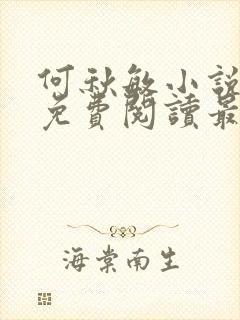 何秋敏小說
免費閱讀最
海棠南生